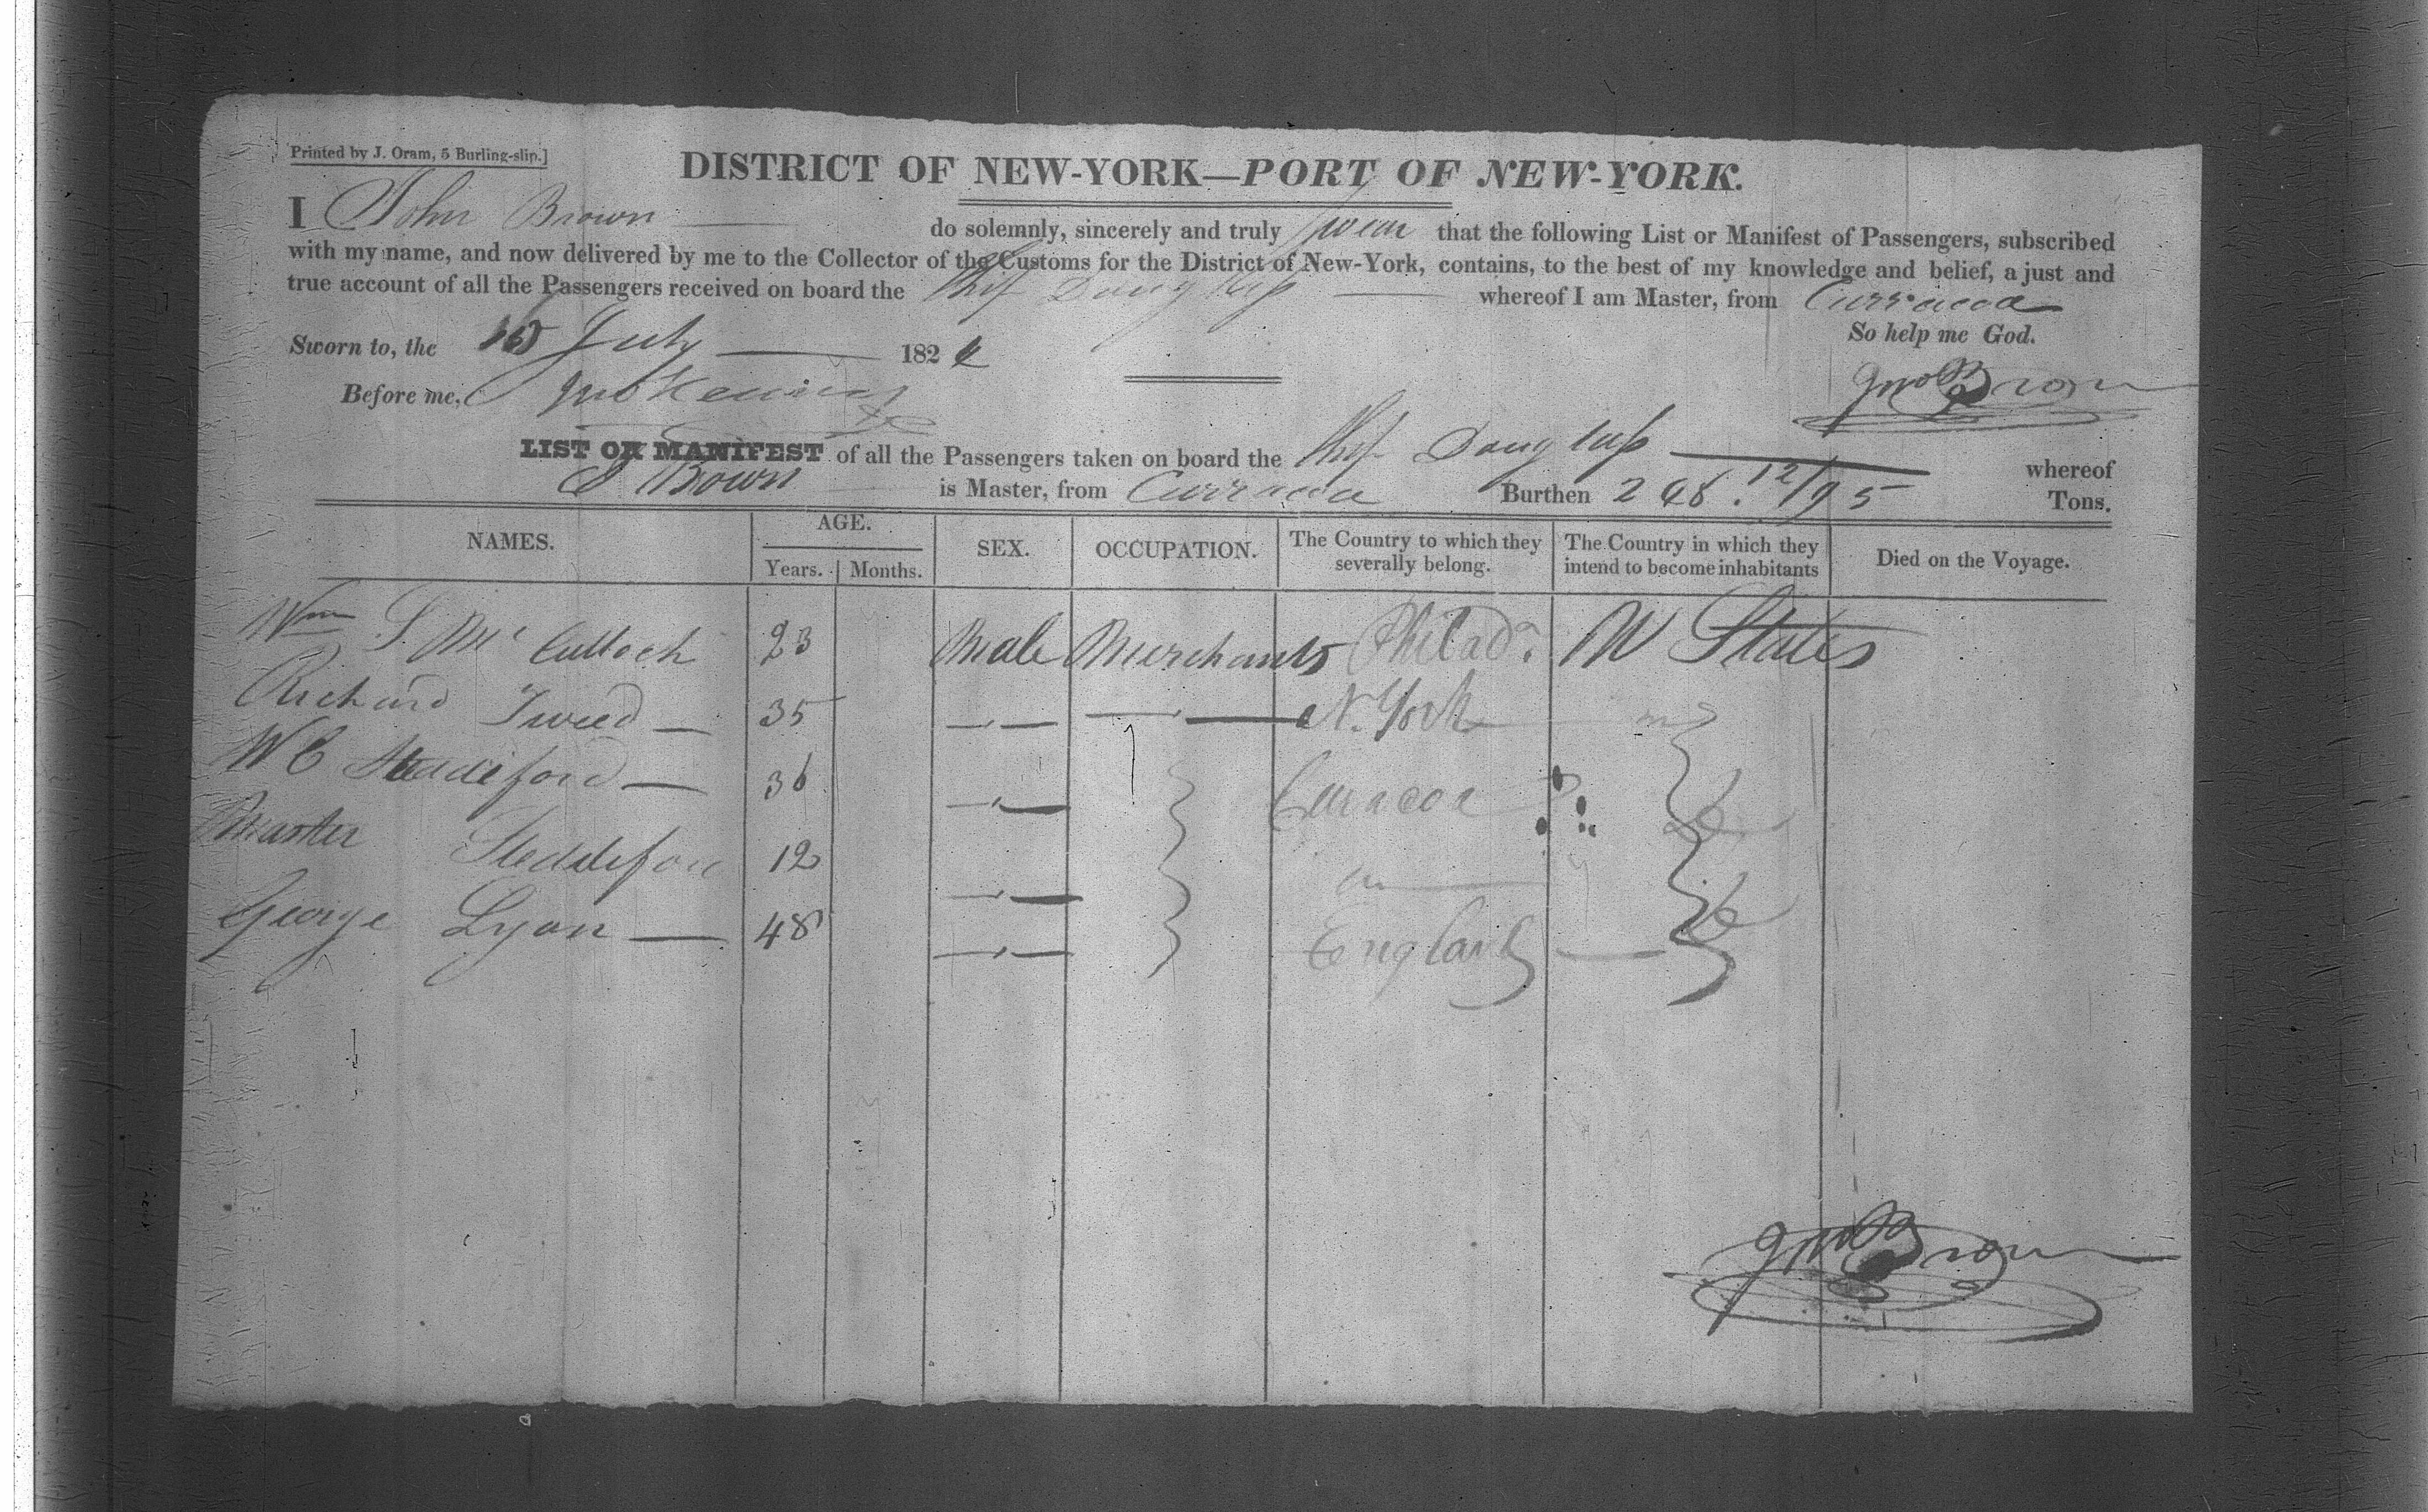 Printed by J. Oram, 5 Burling-slip.]
DISTRICT OF NEW-YORK—PORT OF NEW-YORK.
I John Brown do solemnly, sincerely and truly swear that the following List or Manifest of Passengers, subscribed
with my name, and now delivered by me to the Collector of the Customs for the District of New-York, contains, to the best of my knowledge and belief, a just and
true account of all the Passengers received on board the Ship Douglass whereof I am Master, from Curracoa
So help me God.
Sworn to, the July 182
Jno Brown
Before me,
LIST OR MANIFEST of all the Passengers taken on board the Ship Douglass whereof
J Brown is Master, from Curracoa Burthen 12/95 Tons.
NAMES. AGE. SEX. OCCUPATION. The Country to which they severally belong. The Country in which they intend to become inhabitants Died on the Voyage.
Years. Months.
Wm S. McCulloch 23 Male Merchants Philada. U States
Richard Tweed 35 N. York
W C Steddiford 36 Curacoa
Master Steddiford 12
George Lyon 48 England
Jno Brown